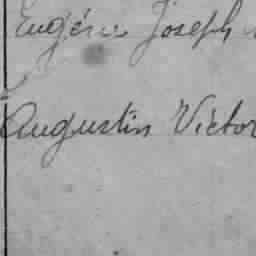 Eugène Joseph
Augustin Victor